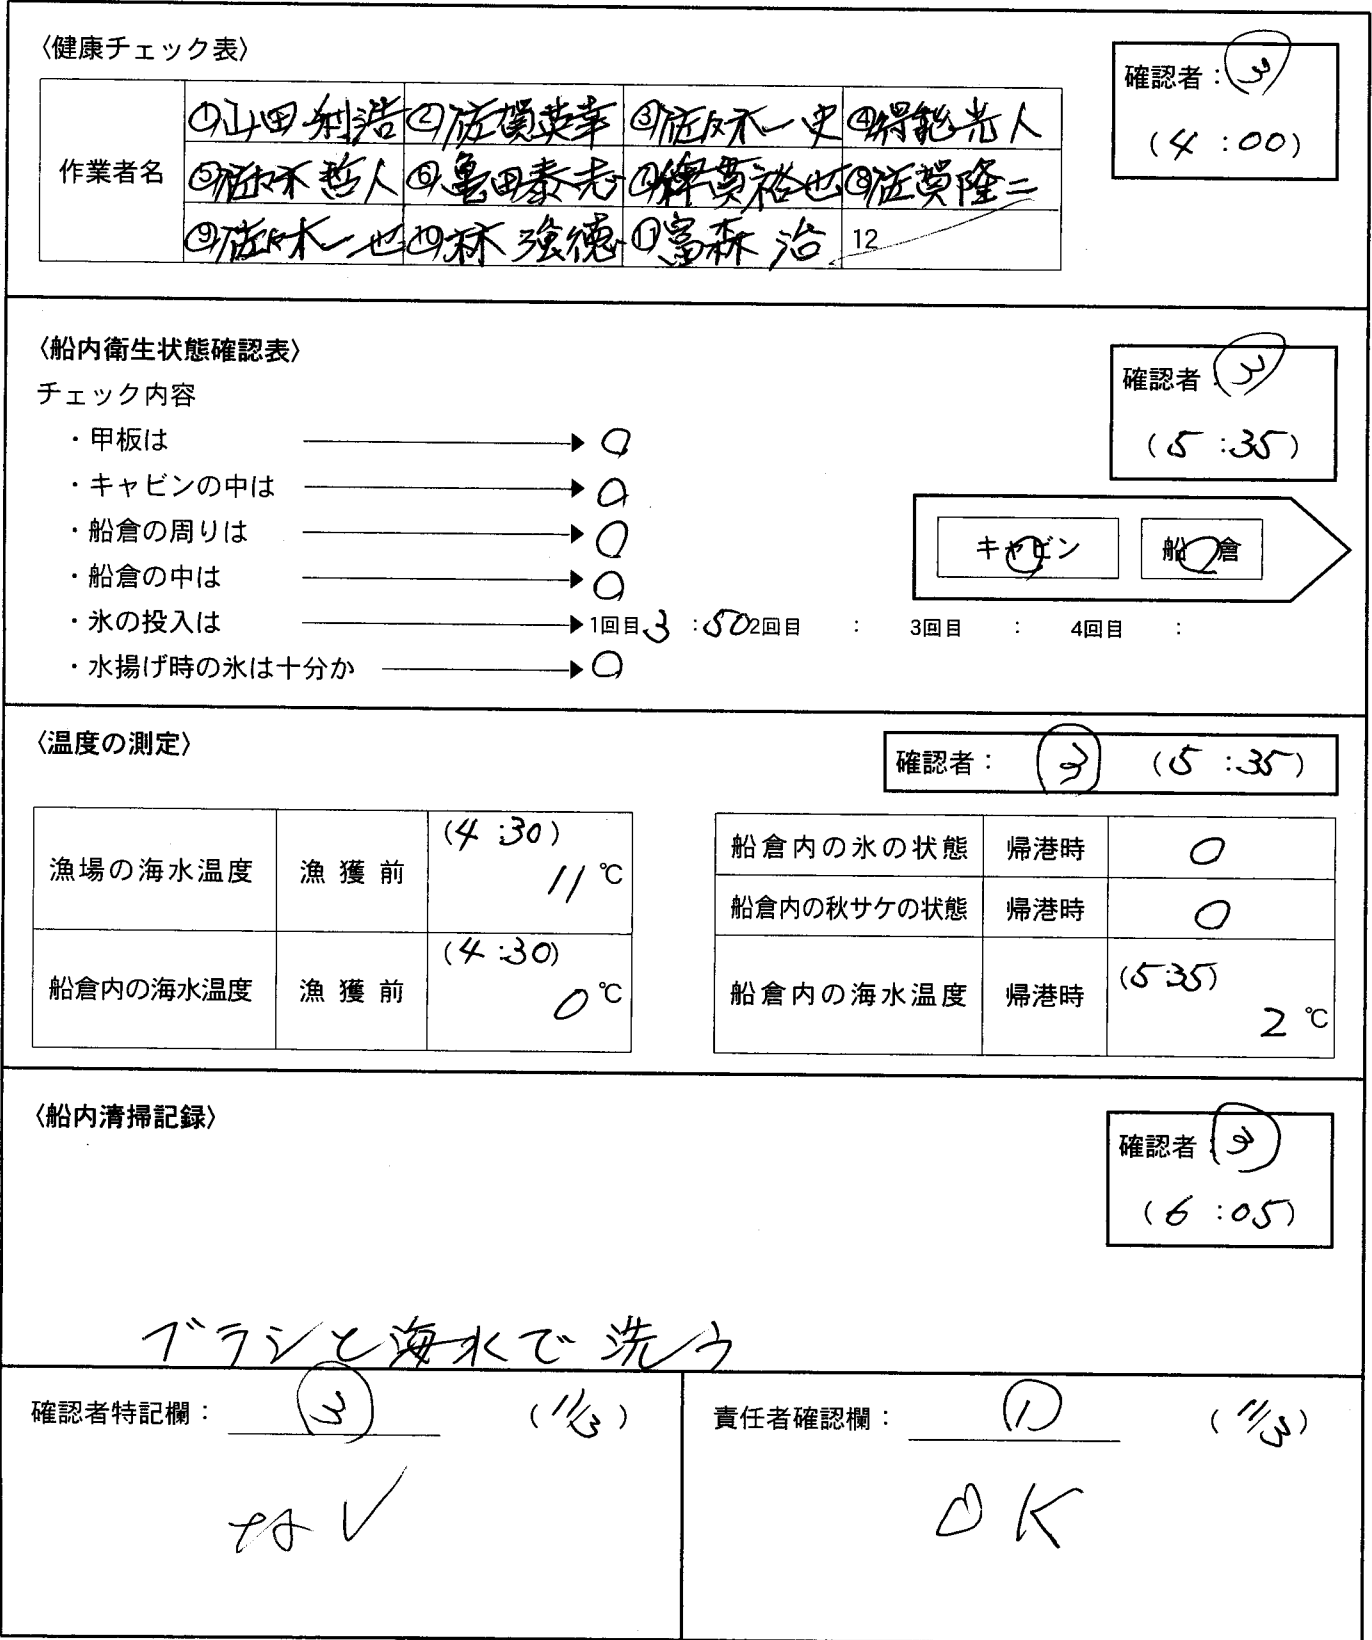 〈健康チェック表〉
確認者：③
(4:00)
作業者名
①山田利浩 ②佐賀英華 ③佐々木一史 ④得能光人
⑤佐々木哲人 ⑥亀田泰志 ⑦ 裕也 ⑧佐賀隆二
⑨佐々木一也 ⑩林強徳 ⑪富森治 12
〈船内衛生状態確認表〉
確認者：③
(5:35)
チェック内容
・甲板は ○
・キャビンの中は ○
・船倉の周りは ○
・船倉の中は ○
キャビン 船倉
・氷の投入は 1回目 3:50 2回目 : 3回目 : 4回目 :
・水揚げ時の氷は十分か ○
〈温度の測定〉
確認者：③ (5:35)
漁場の海水温度 漁獲前 (4:30) 11℃
船倉内の海水温度 漁獲前 (4:30) 0℃
船倉内の氷の状態 帰港時 ○
船倉内の秋サケの状態 帰港時 ○
船倉内の海水温度 帰港時 (5:35) 2℃
〈船内清掃記録〉
確認者：③
(6:05)
ブラシと海水で洗う
確認者特記欄：③ (11/3)
なし
責任者確認欄：① (11/3)
OK